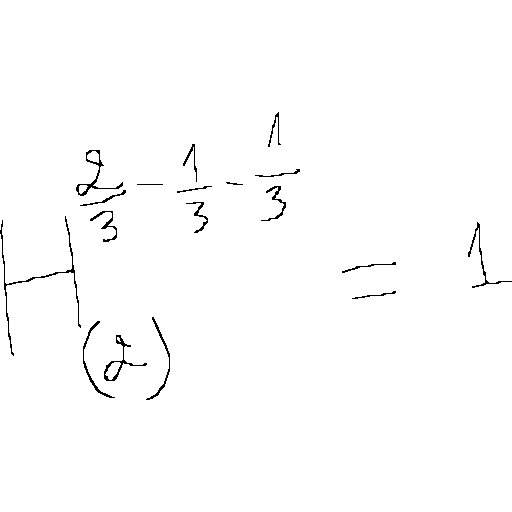 H_{(2)}^{\frac{2}{3}-\frac{1}{3}-\frac{1}{3}} = 1